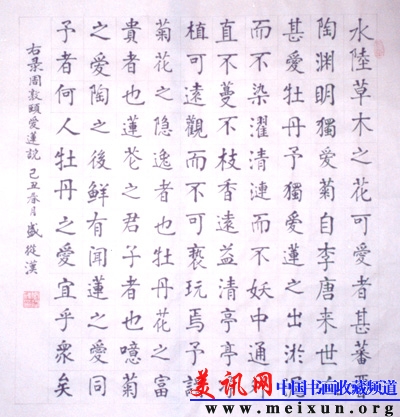 水陸草木之花可愛者甚蕃晋
陶渊明獨愛菊自李唐来世人
甚愛牡丹予獨愛蓮之出淤泥
而不染濯清漣而不妖中通
直不蔓不枝香遠益清亭亭
植可遠觀而不可褻玩焉予謂
菊花之隐逸者也牡丹花之富
貴者也蓮花之君子者也噫菊
之愛陶之後鮮有聞蓮之愛同
予者何人牡丹之愛宜乎衆矣
右录周敦頤愛蓮說 己丑春月 盛從漢
美讯网 中国书画收藏频道
www.meixun.org